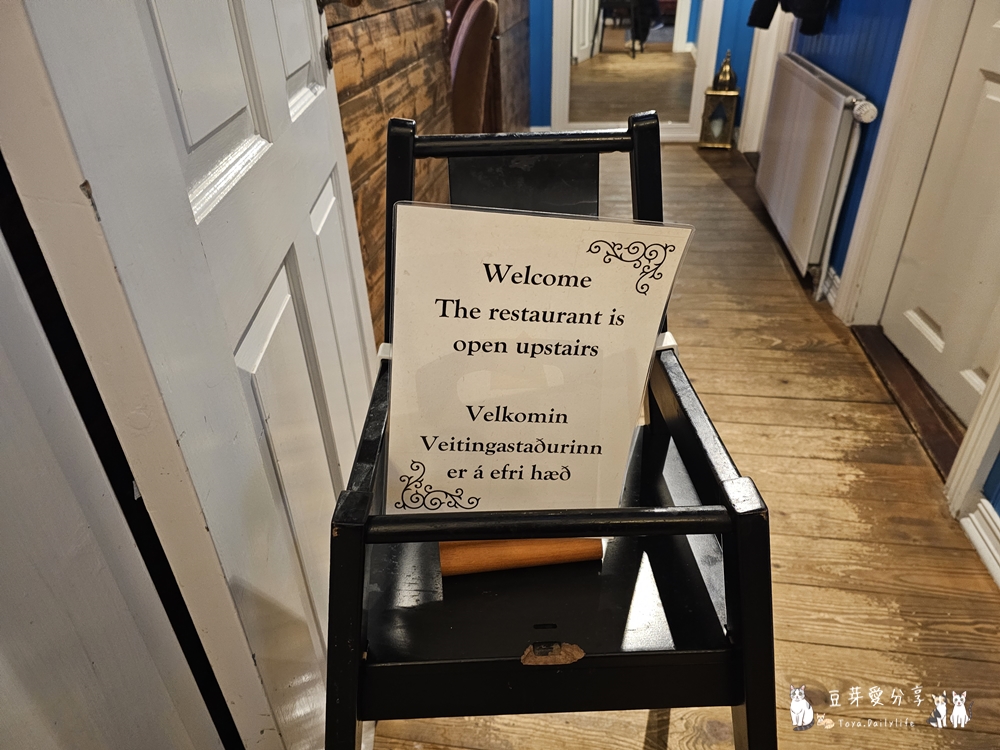 Welcome
The restaurant is
open upstairs
Velkomin
Veitingastaðurinn
er á efri hæð
豆芽愛分享
Toya.Dailylife